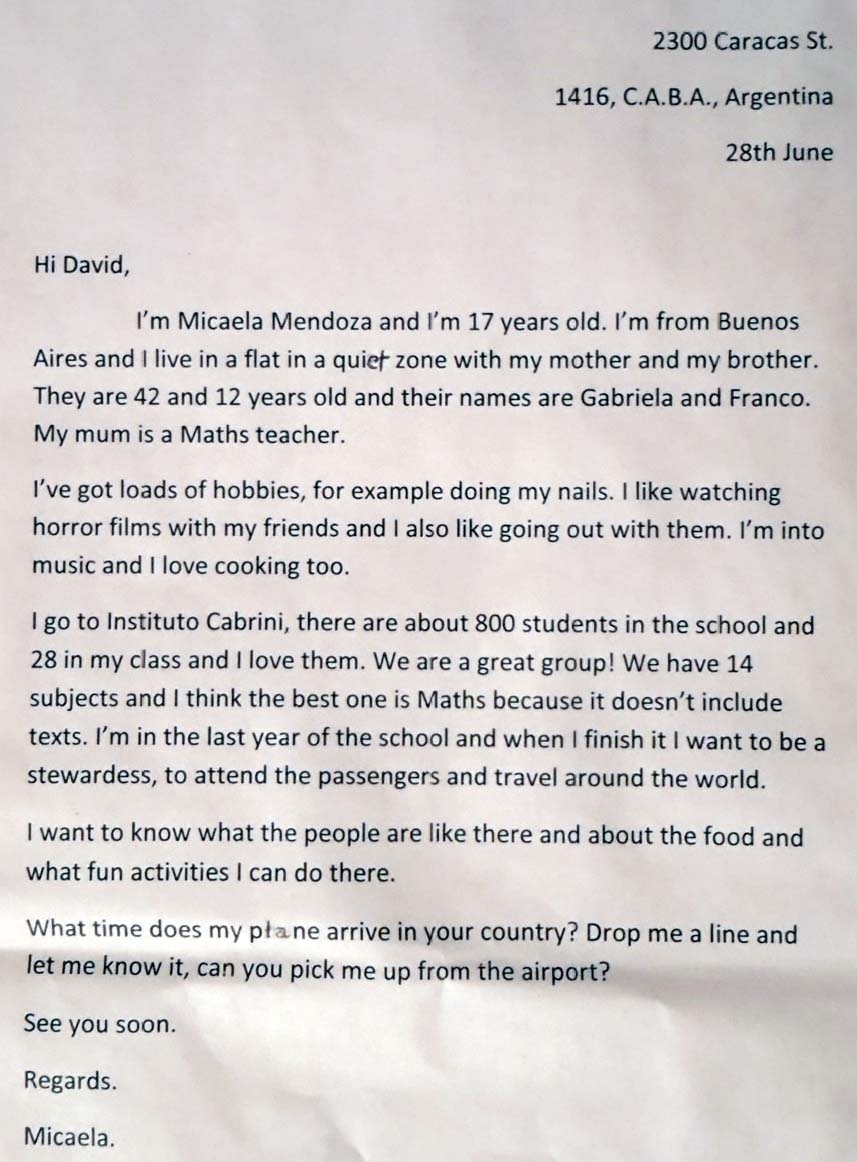 2300 Caracas St.
1416, C.A.B.A., Argentina
28th June
Hi David,
I'm Micaela Mendoza and I'm 17 years old. I'm from Buenos
Aires and I live in a flat in a quiet zone with my mother and my brother.
They are 42 and 12 years old and their names are Gabriela and Franco.
My mum is a Maths teacher.
I've got loads of hobbies, for example doing my nails. I like watching
horror films with my friends and I also like going out with them. I'm into
music and I love cooking too.
I go to Instituto Cabrini, there are about 800 students in the school and
28 in my class and I love them. We are a great group! We have 14
subjects and I think the best one is Maths because it doesn't include
texts. I'm in the last year of the school and when I finish it I want to be a
stewardess, to attend the passengers and travel around the world.
I want to know what the people are like there and about the food and
what fun activities I can do there.
What time does my plane arrive in your country? Drop me a line and
let me know it, can you pick me up from the airport?
See you soon.
Regards.
Micaela.